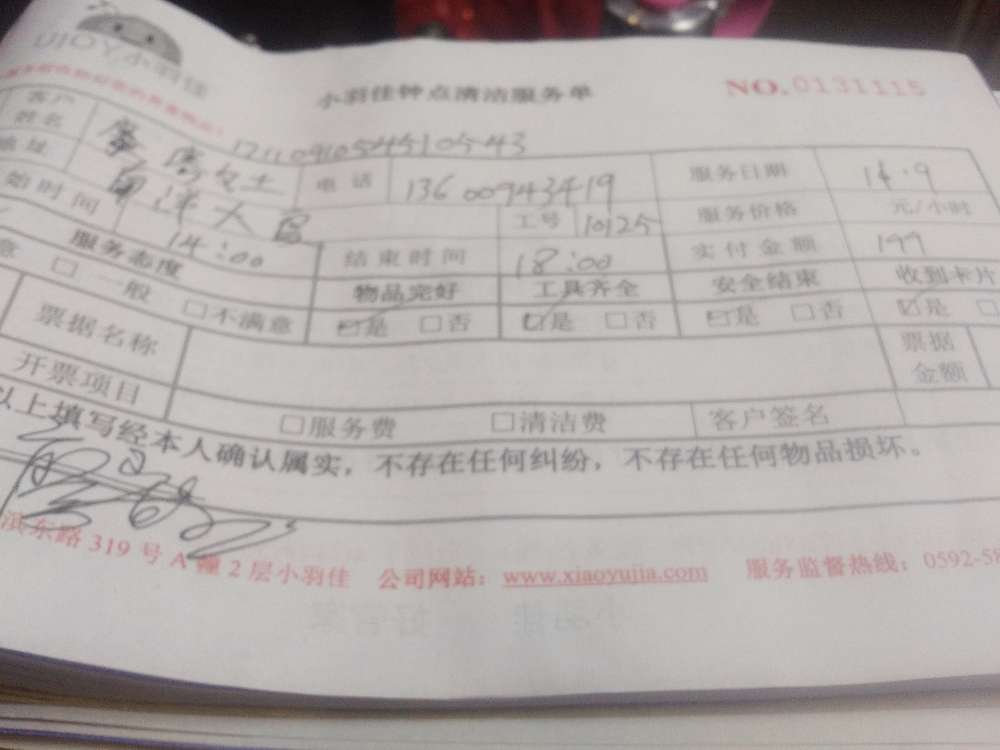 小羽佳
小羽佳钟点清洁服务单 NO.0131115
客户姓名 女士 电话 13600943419 服务日期 14.9
地址 工号 10125 服务价格 元/小时
始时间 14:00 结束时间 18:00 实付金额 199
服务态度 物品完好 工具齐全 安全结束 收到卡片
意 □一般 □不满意 ☑是 □否 ☑是 □否 ☑是 □否 ☑是 □
票据名称 票据金额
开票项目 □服务费 □清洁费 客户签名
以上填写经本人确认属实，不存在任何纠纷，不存在任何物品损坏。
滨东路319号A幢2层小羽佳 公司网站：www.xiaoyujia.com 服务监督热线：0592-58